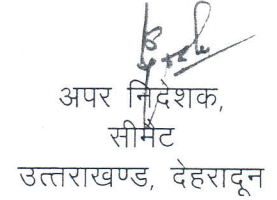 अपर निदेशक,
सीमैट
उत्तराखण्ड, देहरादून